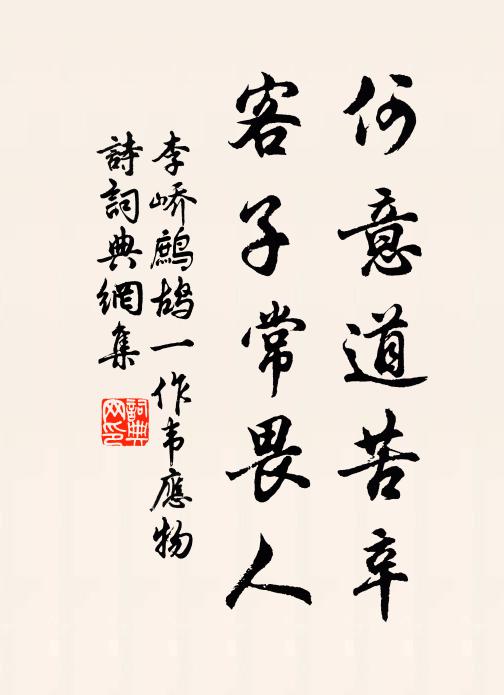 何意道苦辛
客子常畏人
李峤鹧鸪一作韦應物
詩詞典網集
詞典
网印